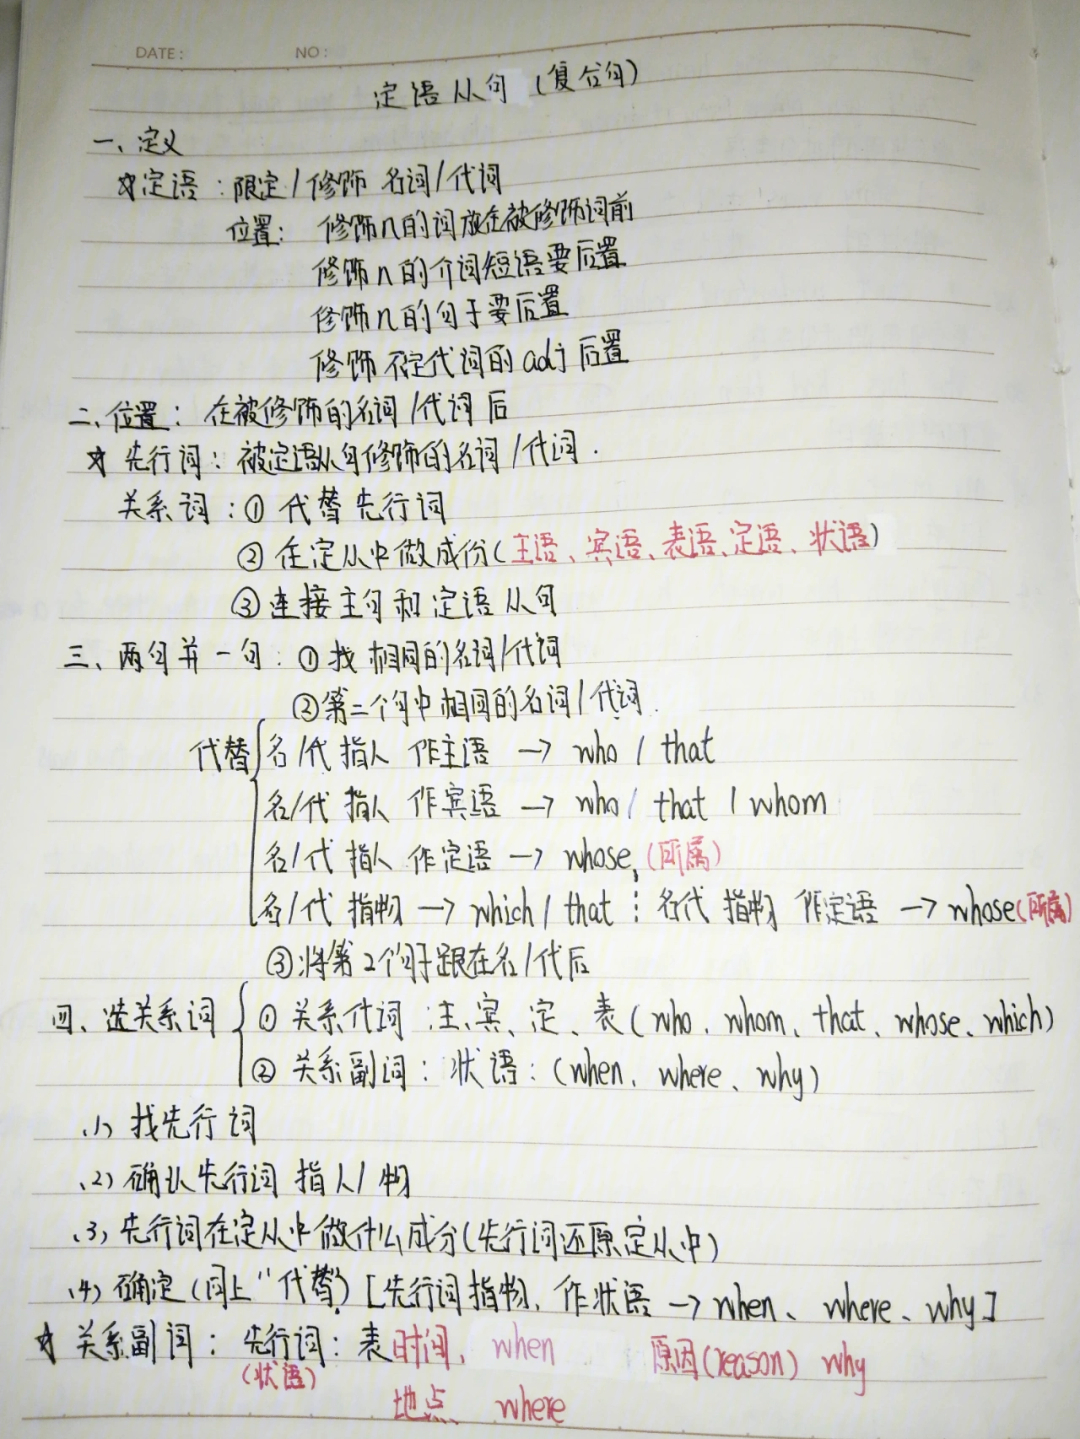 DATE: NO:
定语从句(复合句)
一、定义
☆定语:限定/修饰 名词/代词
位置: 修饰n的词放在被修饰词前
修饰n的介词短语要后置
修饰n的句子要后置
修饰不定代词的adj后置
二、位置:在被修饰的名词/代词后
☆ 先行词:被定语从句修饰的名词/代词.
关系词:①代替先行词
②在定从中做成份(主语、宾语、表语、定语、状语)
③连接主句和定语从句
三、两句并一句:①找相同的名词/代词
②第二个句中相同的名词/代词.
代替{名/代 指人 作主语 → who / that
名/代 指人 作宾语 → who / that / whom
名/代 指人 作定语 → whose,(所属)
名/代 指物 → which / that ; 名代 指物 作定语 → whose(所属)
③将第2个句子跟在名/代后
四、选关系词{①关系代词:主、宾、定、表(who、whom、that、whose、which)
②关系副词:状语:(when、where、why)
(1)找先行词
(2)确认先行词 指人/物
(3)先行词在定从中做什么成分(先行词还原定从中)
(4)确定(同上“代替”)[先行词指物,作状语 → when、where、why]
☆ 关系副词: 先行词:表时间, when 原因(reason) why
(状语)
地点 where